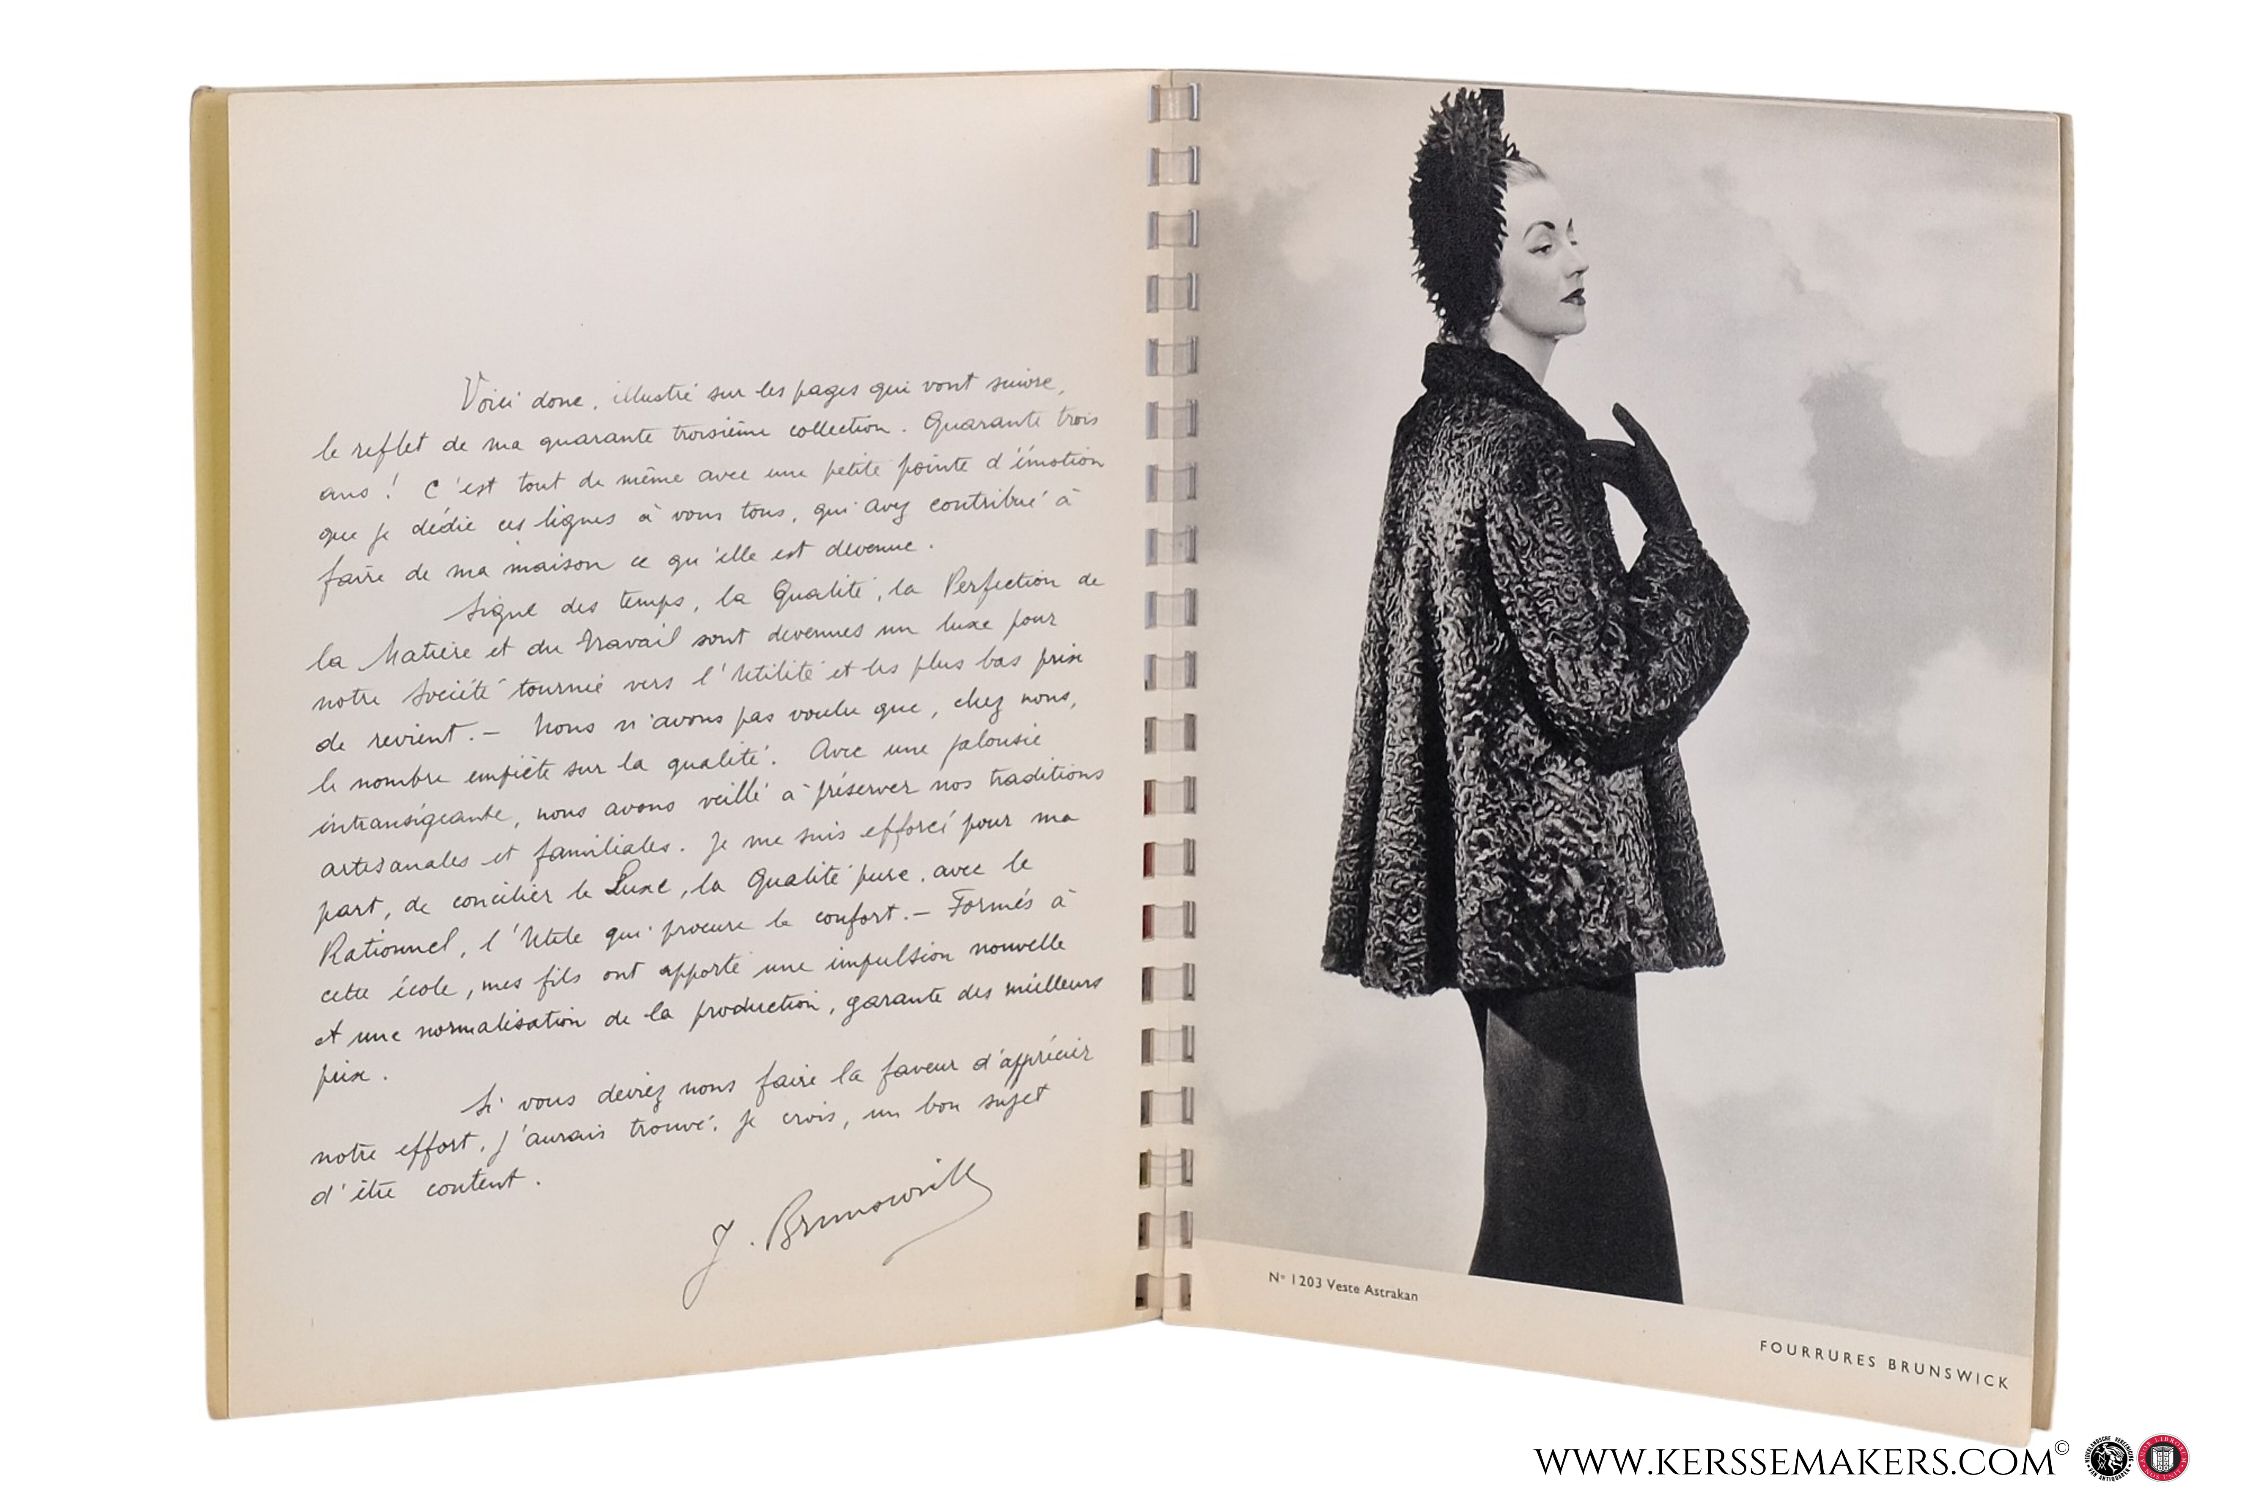 Voici donc, illustré sur les pages qui vont suivre,
le reflet de ma quarante troisième collection. Quarante trois
ans ! C'est tout de même avec une petite pointe d'émotion
que je dédie ces lignes à vous tous, qui avez contribué à
faire de ma maison ce qu'elle est devenue.
Signe des temps, la Qualité, la Perfection de
la Matière et du Travail sont devenues un luxe pour
notre Société tournée vers l'Utilité et les plus bas prix
de revient. — Nous n'avons pas voulu que, chez nous,
le nombre empiète sur la qualité. Avec une jalousie
intransigeante, nous avons veillé à préserver nos traditions
artisanales et familiales. Je me suis efforcé pour ma
part, de concilier le Luxe, la Qualité pure, avec le
Rationnel, l'Utile qui procure le confort. — Formés à
cette école, mes fils ont apporté une impulsion nouvelle
et une normalisation de la production, garante des meilleurs
prix.
Si vous deviez nous faire la faveur d'apprécier
notre effort, j'aurais trouvé, je crois, un bon sujet
d'être content.
J. Brunswick
N° 1203 Veste Astrakan
FOURRURES BRUNSWICK
WWW.KERSSEMAKERS.COM©